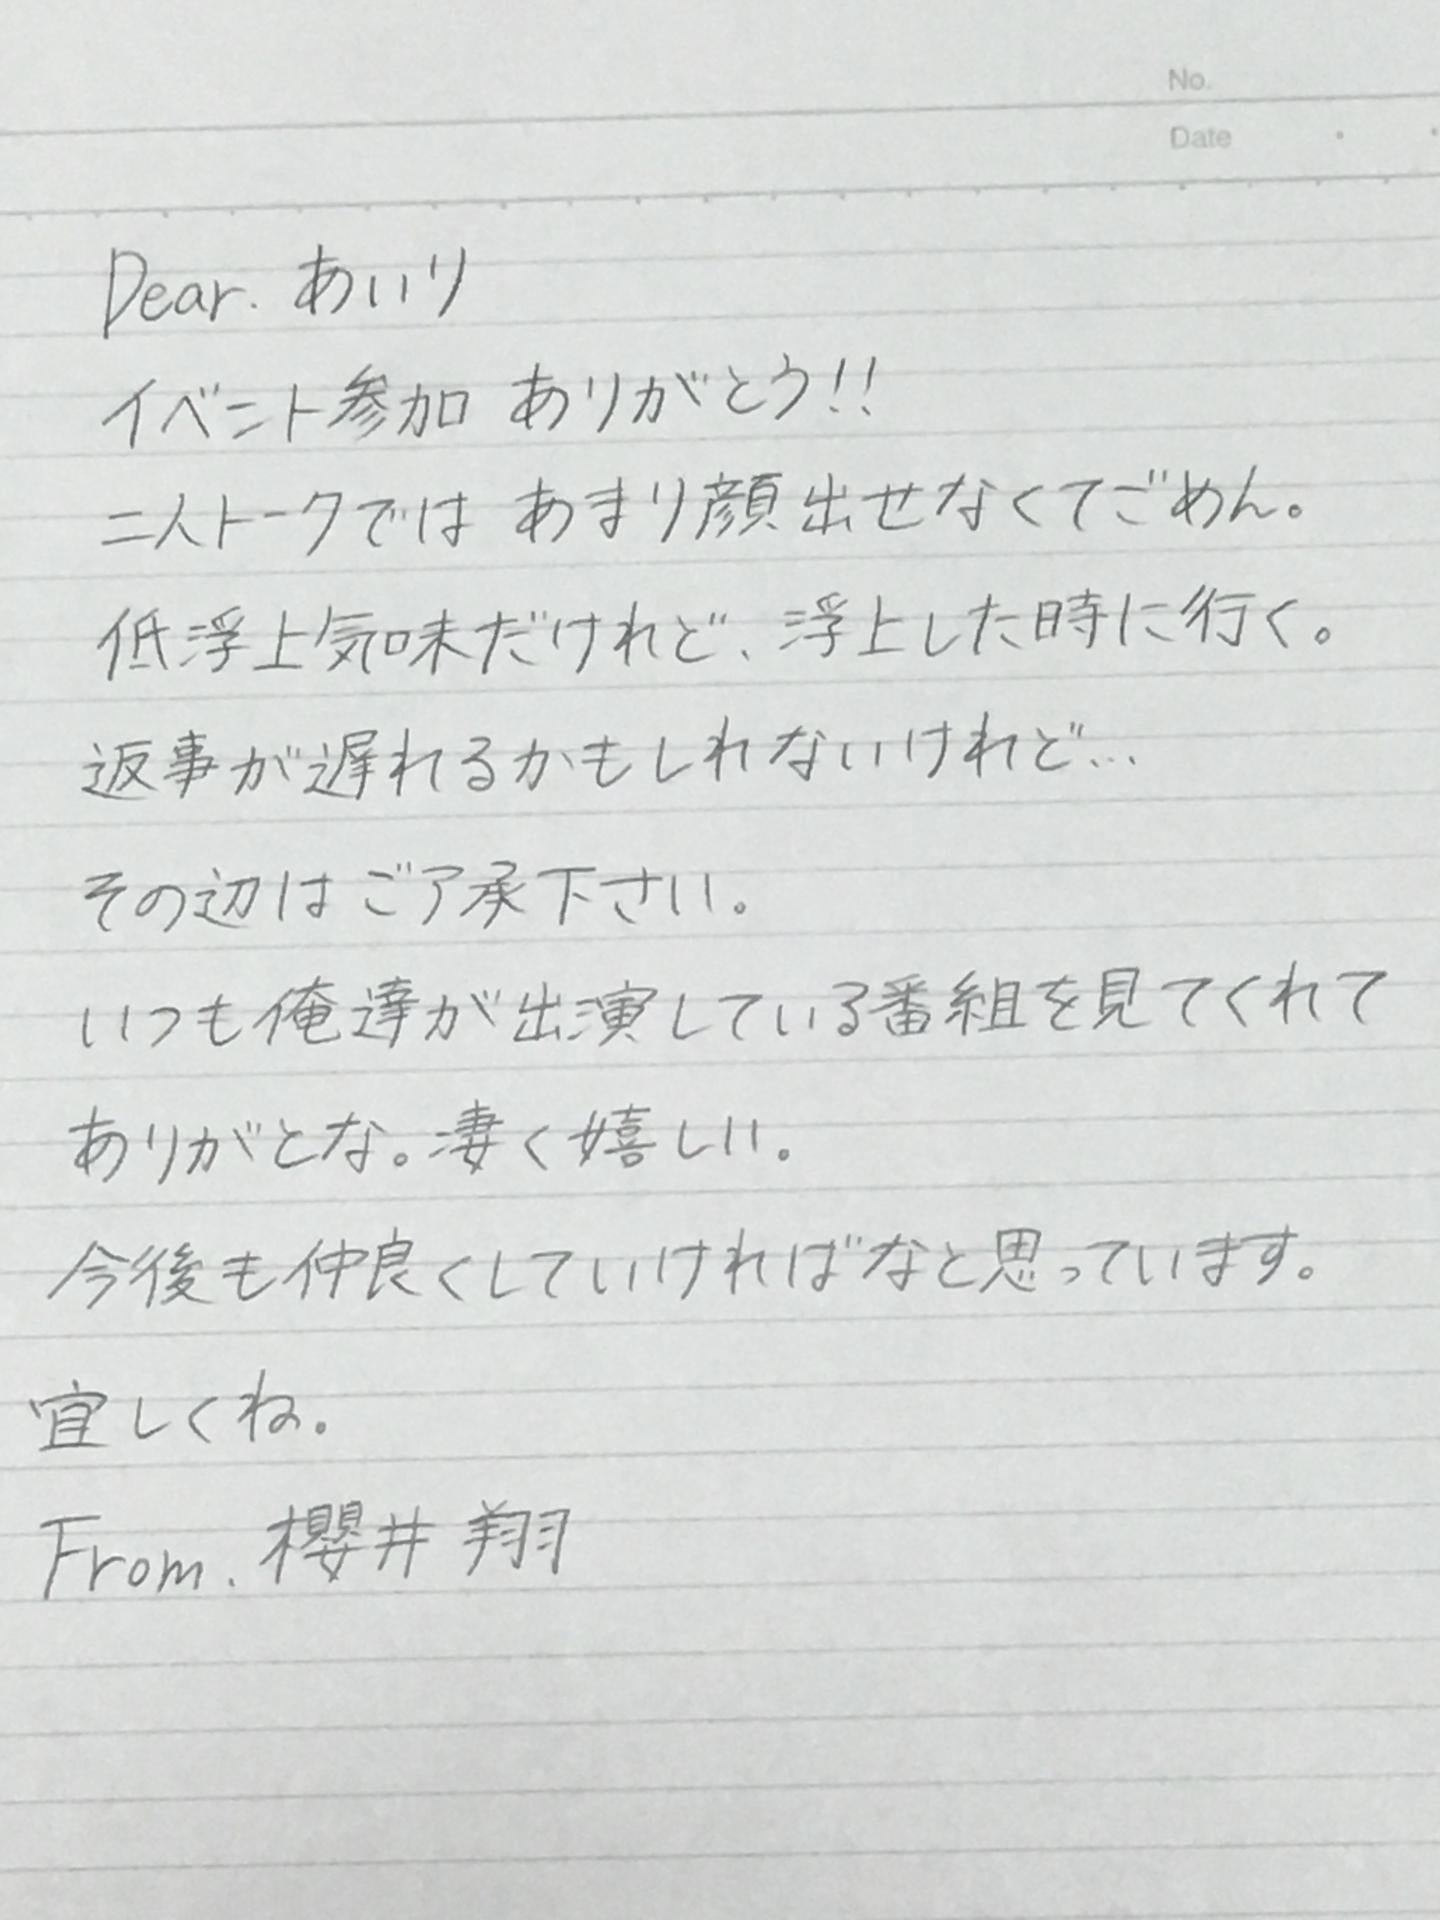 No.
Date
Dear. あいり
イベント参加 ありがとう!!
二人トークでは あまり顔出せなくてごめん。
低浮上気味だけれど、浮上した時に行く。
返事が遅れるかもしれないけれど…
その辺はご了承下さい。
いつも俺達が出演している番組を見てくれて
ありがとな。凄く嬉しい。
今後も仲良くしていければなと思っています。
宜しくね。
From. 櫻井 翔